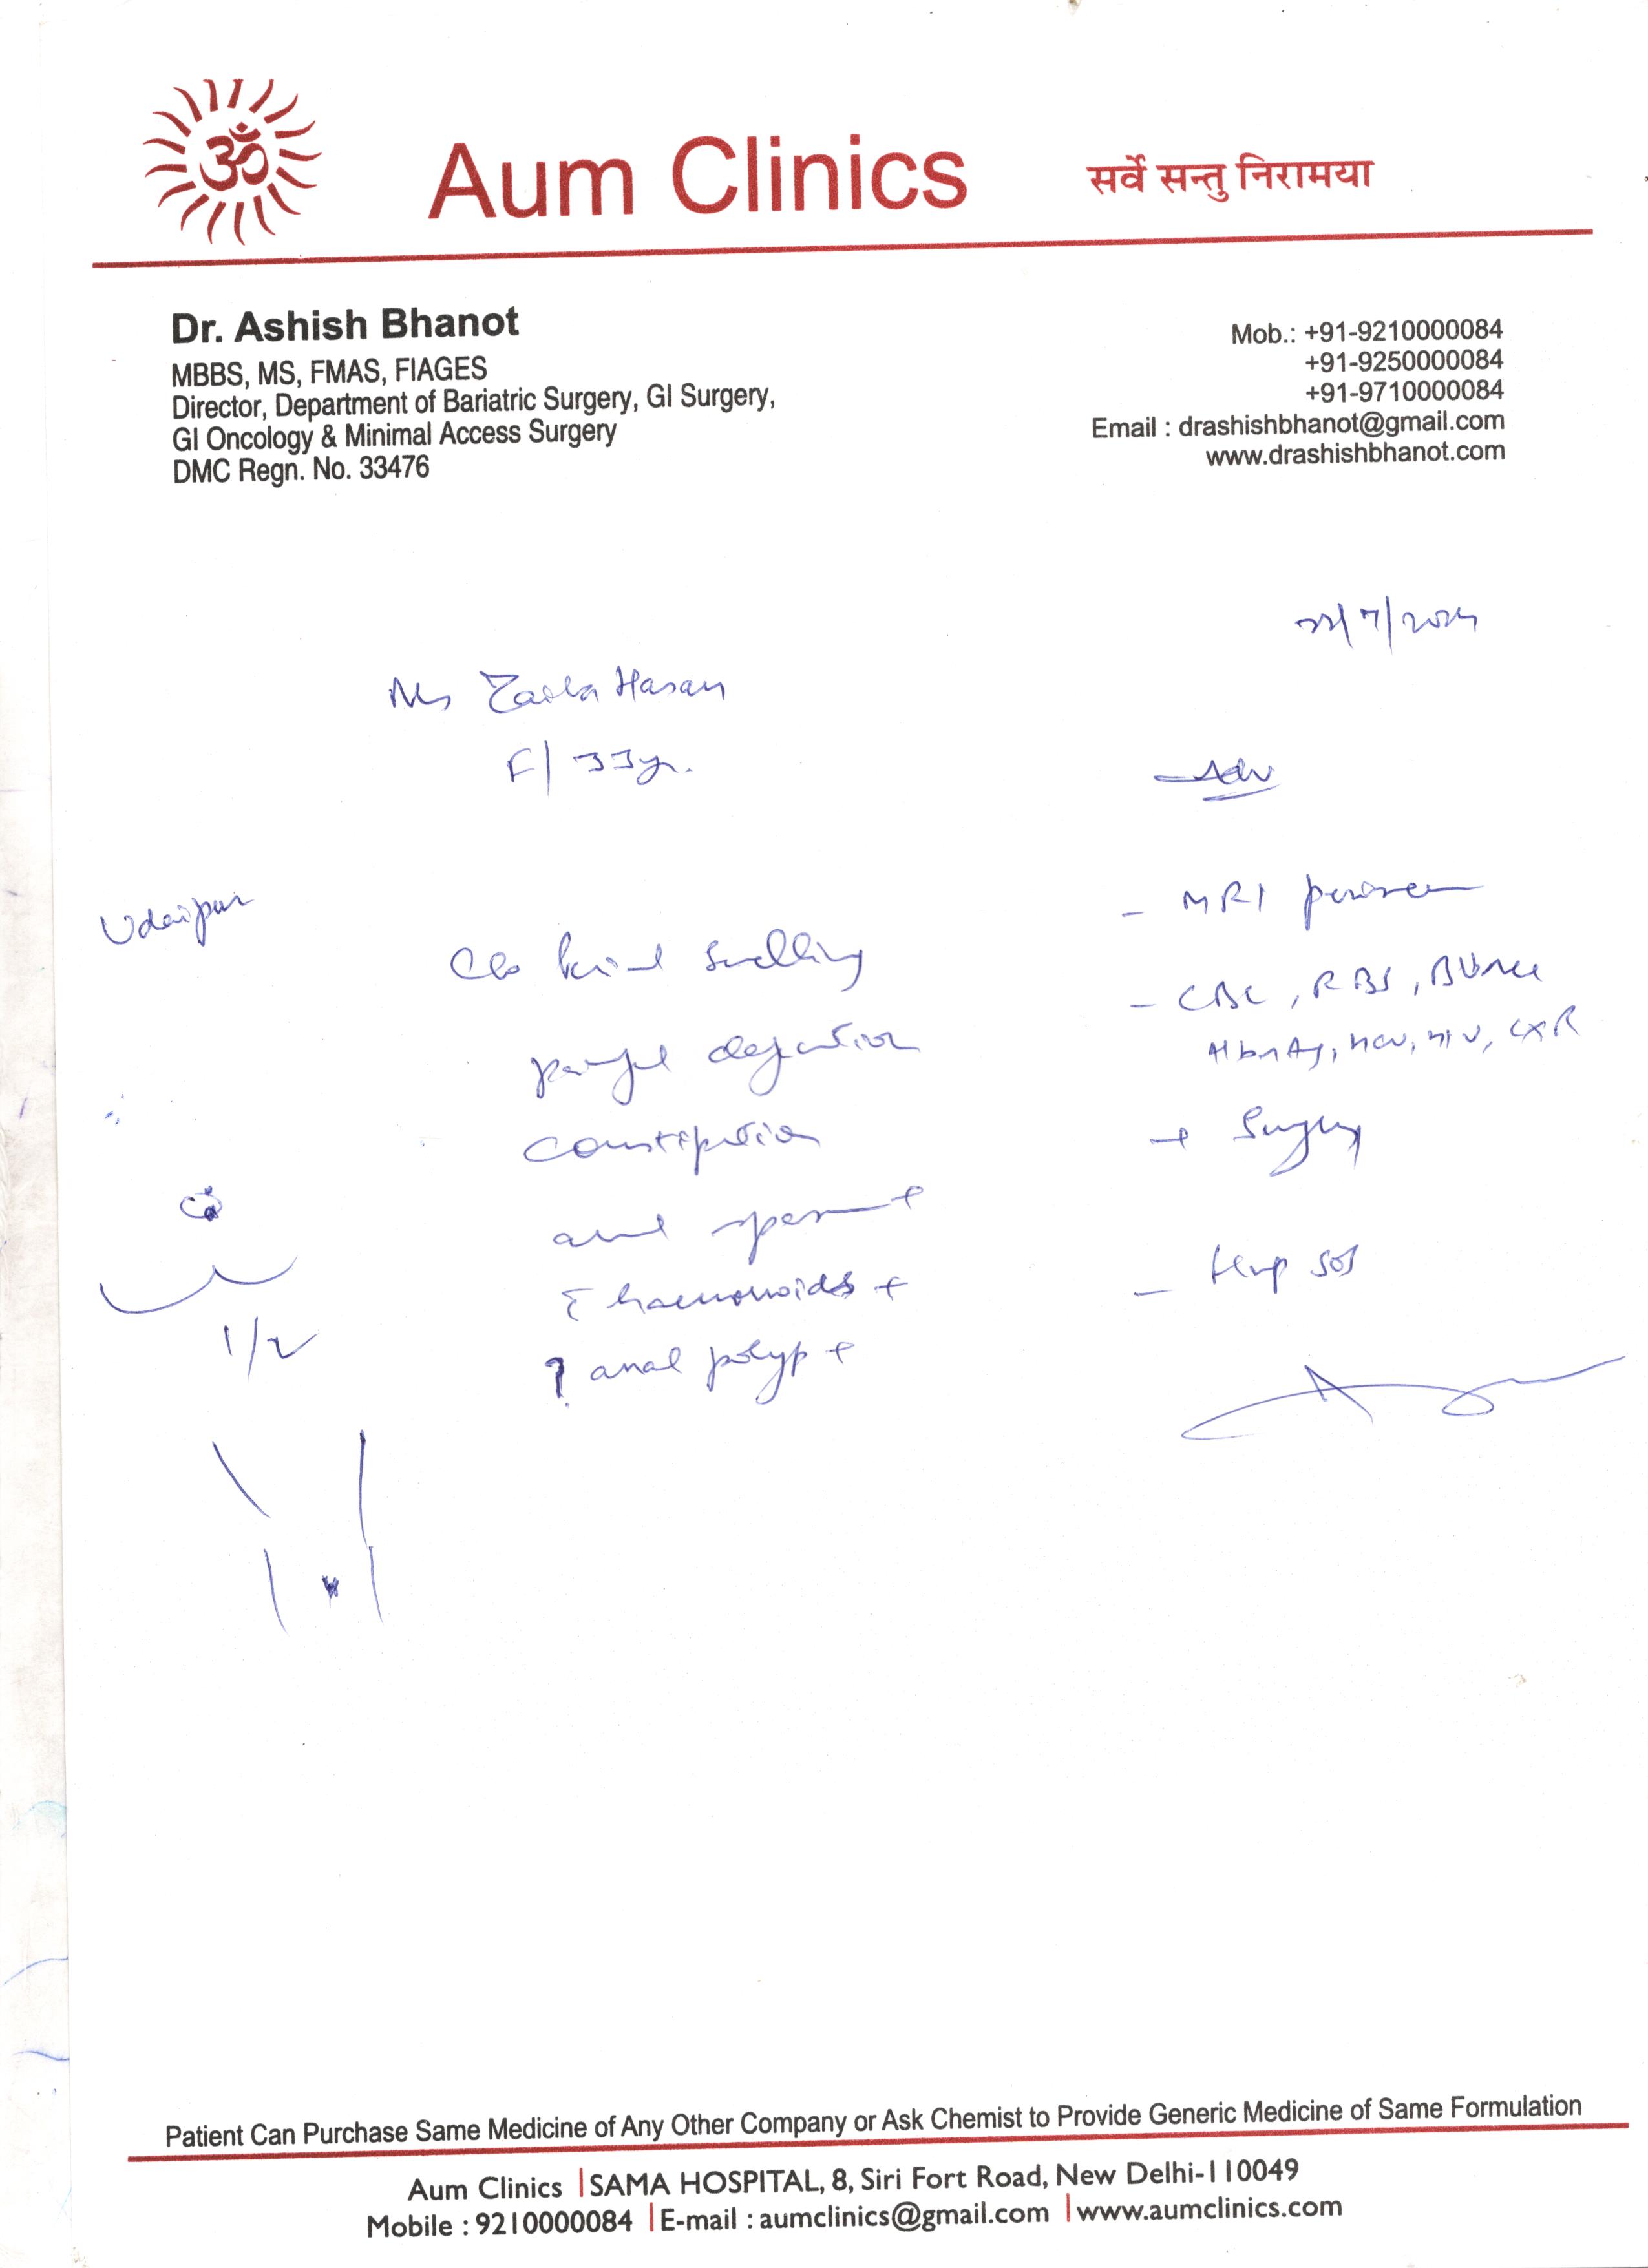 ॐ
Aum Clinics
सर्वे सन्तु निरामया
Dr. Ashish Bhanot
MBBS, MS, FMAS, FIAGES
Director, Department of Bariatric Surgery, GI Surgery,
GI Oncology & Minimal Access Surgery
DMC Regn. No. 33476
Mob.: +91-9210000084
+91-9250000084
+91-9710000084
Email : drashishbhanot@gmail.com
www.drashishbhanot.com
Ms Hasan
F/33yr.
Udaipur
C/o swelling
painful defecation
constipation
anal spasm +
c̄ haemorrhoids +
? anal polyp +
1/2
Adv
- MRI
- CBC, RBS,
HbsAg, HCV, HIV, CXR
→ Surgery
- SOS
Patient Can Purchase Same Medicine of Any Other Company or Ask Chemist to Provide Generic Medicine of Same Formulation
Aum Clinics | SAMA HOSPITAL, 8, Siri Fort Road, New Delhi-110049
Mobile : 9210000084 | E-mail : aumclinics@gmail.com | www.aumclinics.com